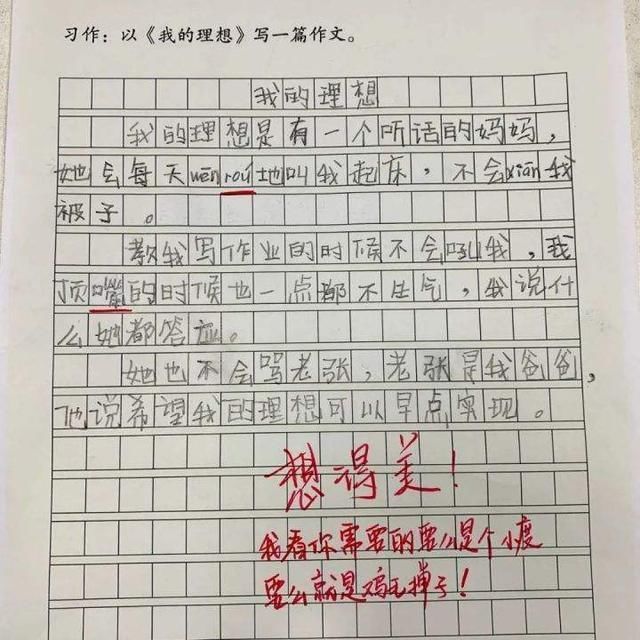 习作：以《我的理想》写一篇作文。
我的理想
我的理想是有一个听话的妈妈，
她会每天wēn róu地叫我起床，不会xiān我
被子。
教我写作业的时候不会吼我，我
顶嘴的时候也一点都不生气，我说什
么她都答应。
她也不会骂老张，老张是我爸爸，
他说希望我的理想可以早点实现。
想得美！
我看你需要的要么是个小鹿
要么就是鸡毛掸子！